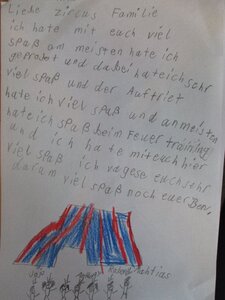 Liebe zirkus Familie
ich hate mit euch viel
spaß am meisten hate ich
geprobt und dabei hateich sehr
viel spaß und der Auftriet
hate ich viel spaß und anmeisten
hateich spaß beim Feuer training
und ich hate miteuch hier
viel spaß ich vagese euch sehr
darum viel spaß noch euer Ben.